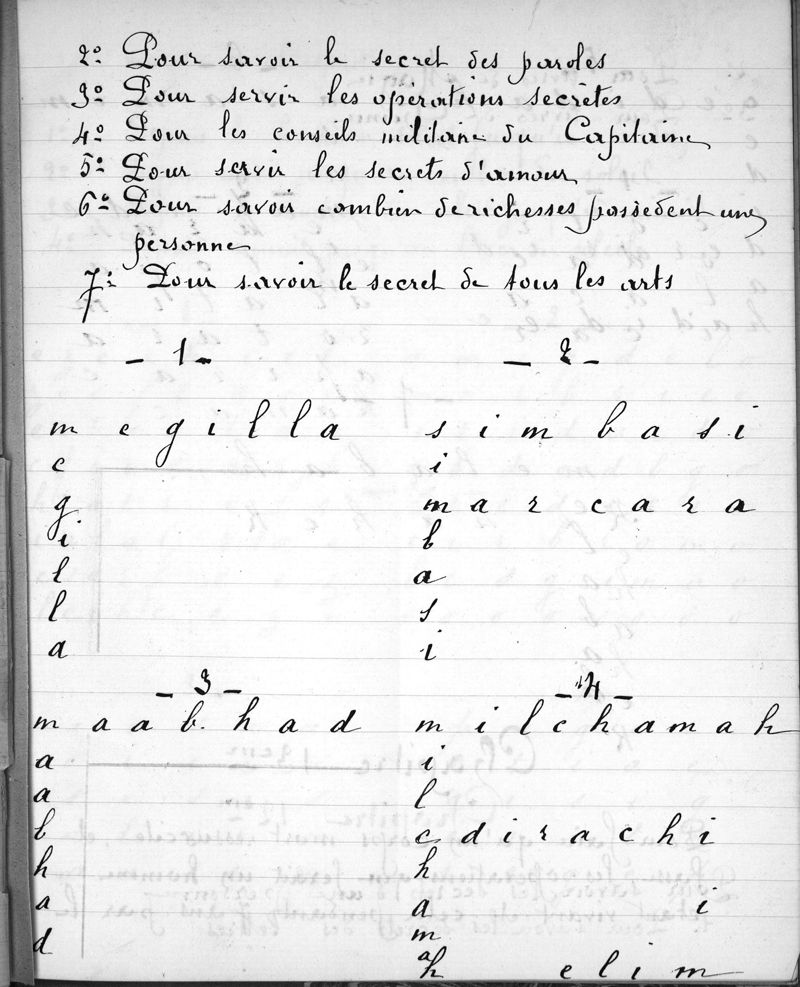 2º Pour savoir le secret des paroles
3º Pour servir les opérations secrètes
4º Pour les conseils militaire du Capitaine
5º Pour servir les secrets d'amour
6º Pour savoir combien de richesses possèdent une
personne
7º Pour savoir le secret de tous les arts
- 1 -
m e g i l l a
e
g
i
l
l
a
- 2 -
s i m b a s i
i
m a r c a r a
b
a
s
i
- 3 -
m a a b. h a d
a
a
b
h
a
d
- 4 -
m i l c h a m a h
i
l
c d i r a c h i
h
a i
m
a
h e l i m